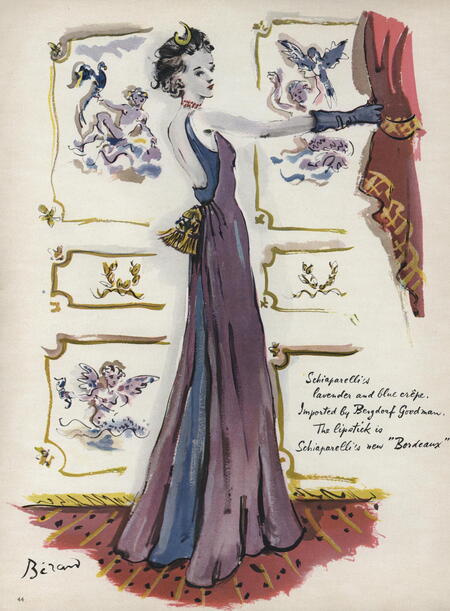 Schiaparelli's
lavender and blue crêpe.
Imported by Bergdorf Goodman.
The lipstick is
Schiaparelli's new "Bordeaux"
Bérard
44